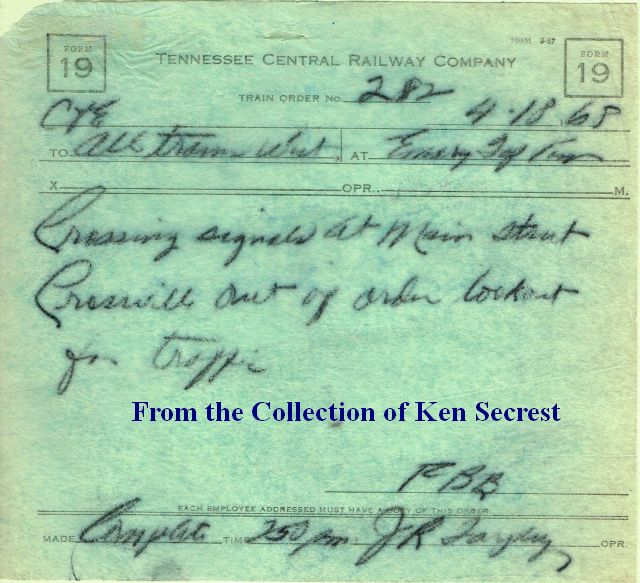 100M 2-67
FORM 19
TENNESSEE CENTRAL RAILWAY COMPANY
FORM 19
TRAIN ORDER No. 282
C&E 4-18 68
TO All trains West AT Emory Gap Tenn
X OPR. M.
Crossing signals at Main street
Crossville out of order lookout
for traffic
From the Collection of Ken Secrest
RBB
EACH EMPLOYEE ADDRESSED MUST HAVE A COPY OF THIS ORDER
MADE Complete TIME 250 pm JR OPR.